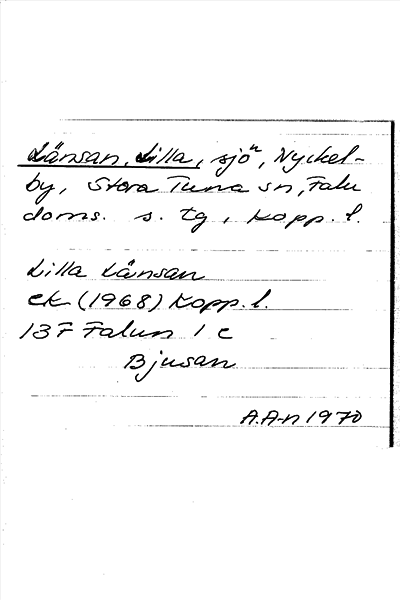 Länsan, Lilla, sjö, Nyckel-
by, Stora Tuna sn, Falu
doms. s. tg, Kopp. l.
Lilla Länsan
ek (1968) Kopp. l.
13F Falun 1 c
Bjusan
A.A-n 1970